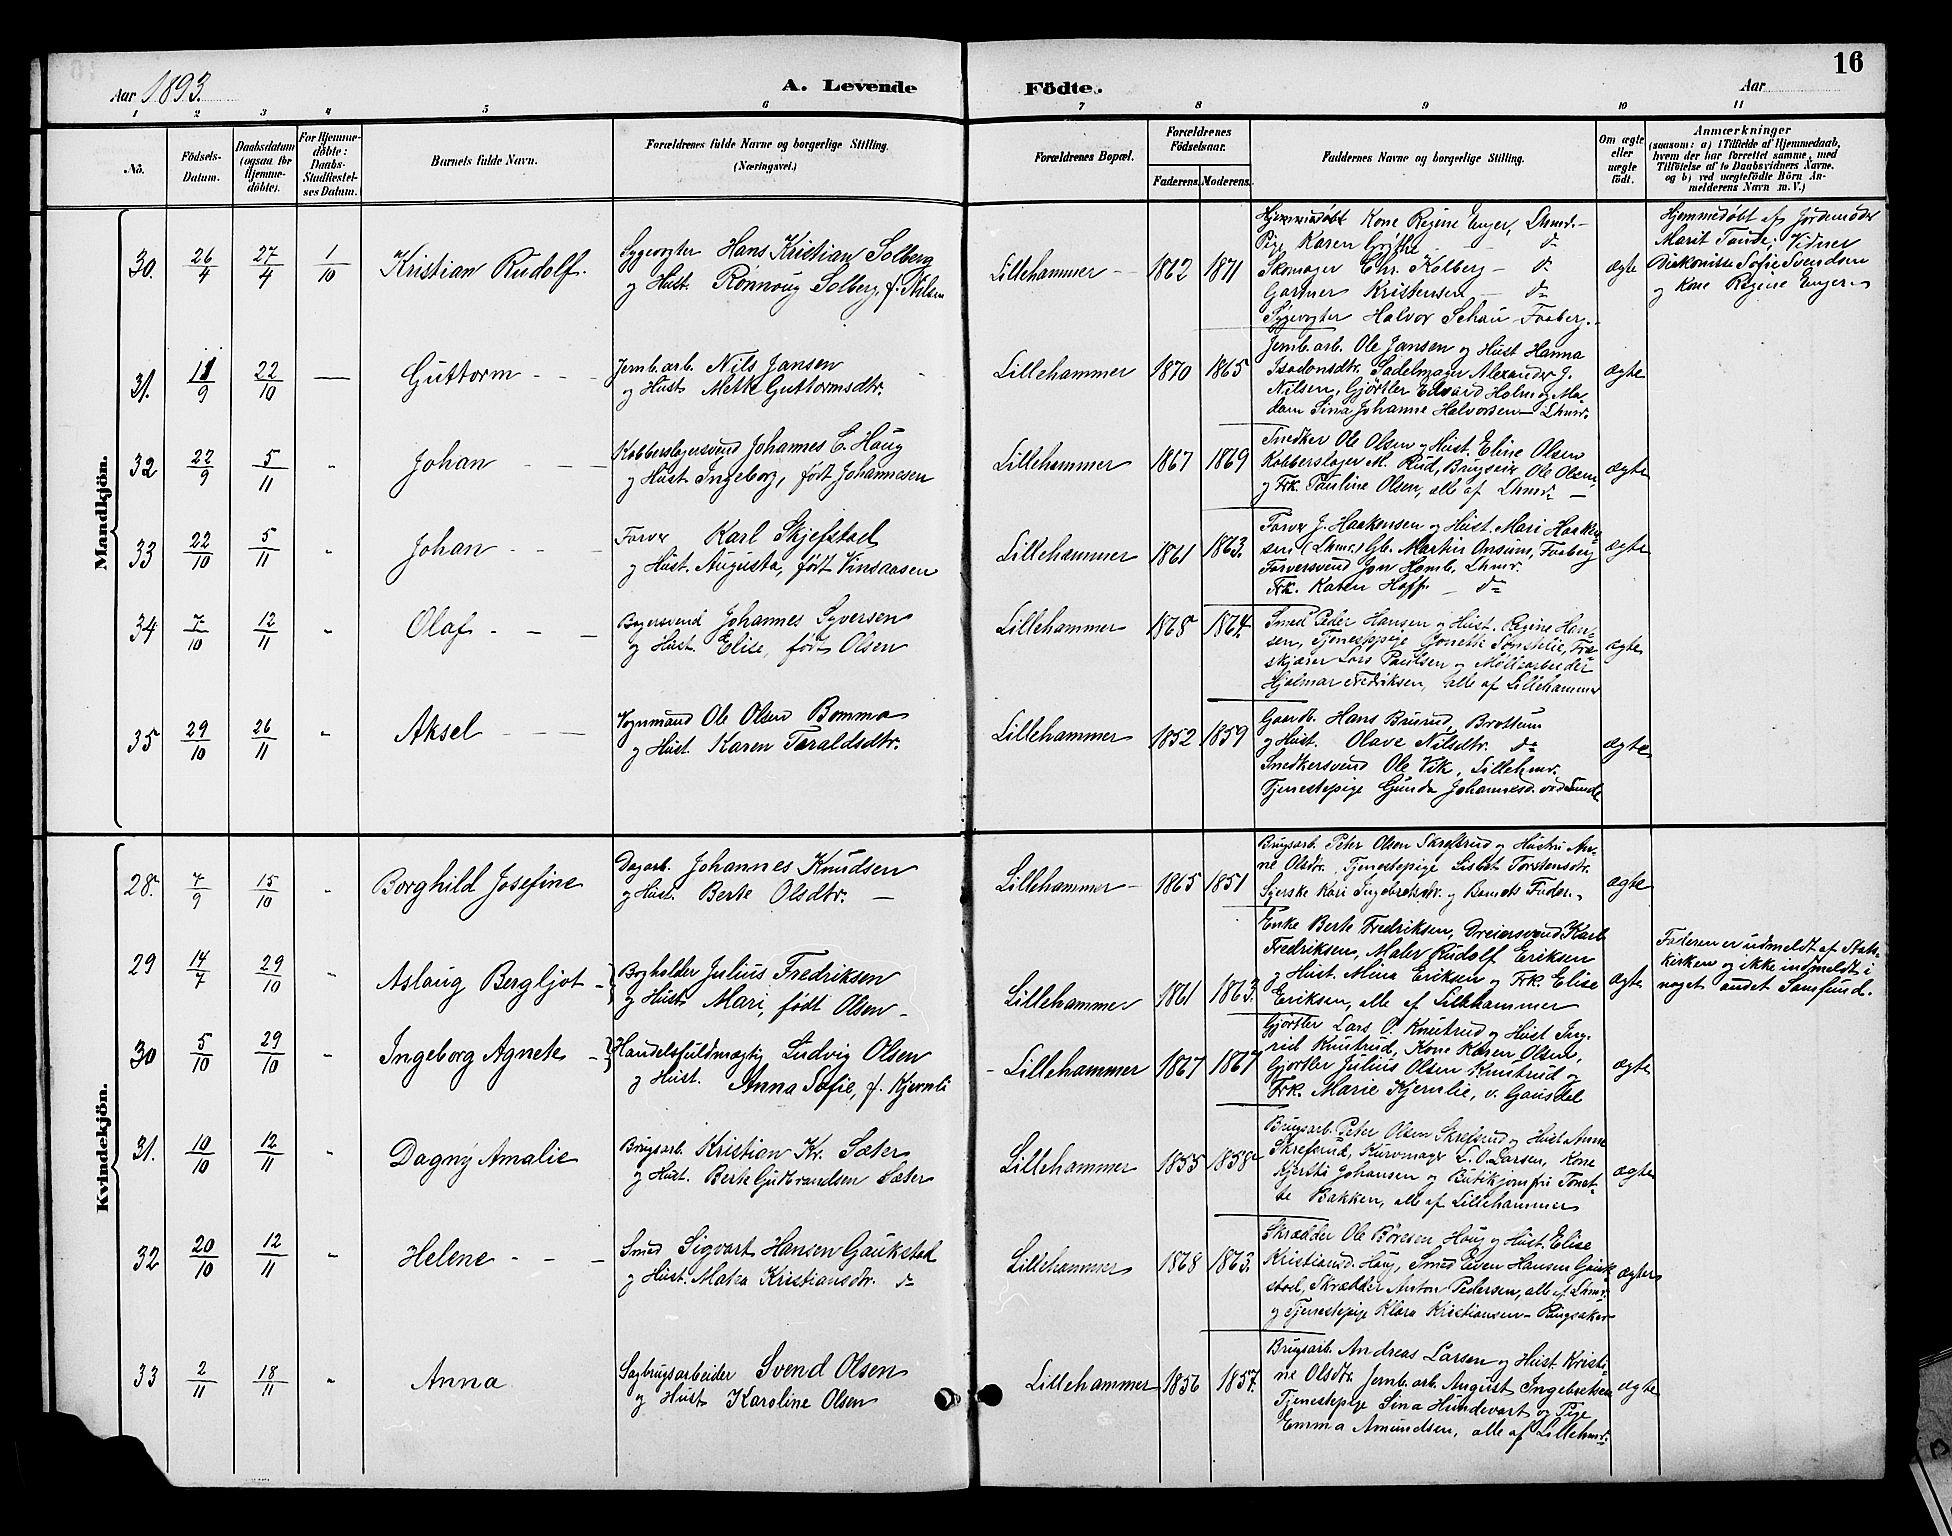 16
Aar 1893. A. Levende Födte. Aar
1 2 3 4 5 6 7 8 9 10 11
No. Födsels-Datum. Daabsdatum (ogsaa for Hjemme-döbte). For Hjemme-döbte: Daabs-Stadfæstel-ses Datum. Barnets fulde Navn. Forældrenes fulde Navne og borgerlige Stilling. (Næringsvei.) Forældrenes Bopæl. Forældrenes Födselsaar. Faderens. Moderens. Faddernes Navne og borgerlige Stilling. Om ægte eller uægte födt. Anmærkninger
(saasom: a) i Tilfælde af Hjemmedaab,
hvem der har forrettet samme, med
Tilföielse af to Daabsvidners Navne.
og b) ved uægtefödte Börn An-
melderens Navn m. V.)
Mandkjön.
30. 26/4 27/4 1/10 Kristian Rudolf.
Sygevogter Hans Kristian Solberg
og Hust. Rønnoug Solberg, f. Nilsen
Lillehammer 1862 1871
Hjemmedøbt Kone Regine Enger, Lhmr.
Pige Karen Grøtlie — d°
Skomager Chr. Kolberg — d°
Gartner Kristensen — d°
Sygevogter Halvor Schau Faaberg.
ægte
Hjemmedøbt af Jordemoder
Marit Tande; Vidner
Diakonisse Sofie Svendsen
og Kone Regine Enger
31. 11/9 22/10 — Guttorm
Jernb.arb. Nils Jansen
og Hust. Mette Guttormsdtr.
Lillehammer 1870 1865
Jernb.arb. Ole Jansen og Hust Hanna
Sadelmager Alexander J.
Nilsen, Gjørtler Edvard Holm og Ma-
dam Sina Johanne Halvorsen Lhmr.
ægte
32 22/9 5/11 " Johan
Kobberslagersvend Johannes E. Haug
og Hust. Ingeborg, født Johannesen
Lillehammer 1867 1869
Snedker Ole Olsen og Hust. Eline Olsen
Kobberslager M. Rud, Ole Olsen,
og Frk. Pauline Olsen, alle af Lhmr.
ægte
33 22/10 5/11 " Johan
Farver Karl Skjefstad
og Hust. Augusta, født Vinsaasen
Lillehammer 1861 1863.
Farver J. Haakensen og Hust. Mari Haaken-
sen (Lhmr.) Gb. Martin Faaberg
Farversvend Jon Homb. Lhmr.
Frk. Karen Hoff — d°
ægte
34 7/10 12/11 " Olaf
Bagersvend Johannes Syversen
og Hust. Elise, født Olsen
Lillehammer 1868 1874.
Smed Peder Hansen og Hust. Regine Han-
sen, Tjenestepige Træ-
skjærer Lars Paulsen og Møllearbeider
Hjalmar Fredriksen, alle af Lillehammer
ægte
35 29/10 26/11 " Aksel
Vognmand Ole Olsen Bomma
og Hust. Karen Taraldsdtr.
Lillehammer 1852 1859
Gaardb. Hans Brøttum
og Hust. Olave Nilsdtr. d°
Snedkersvend Ole Vik, Lillehmr.
Tjenestepige Gunda Johannesd.
ægte
Kvindekjön.
28. 7/9 15/10 " Borghild Josefine
Dagarb. Johannes Knudsen
og Hust. Berte Olsdtr. —
Lillehammer 1865 1851
Brugsarb. Peter Olsen Skrefsrud og Hustru An-
ne Olsdtr. Tjenestepige Lisbet Torstensdtr.
Syerske Kari Ingebretsdtr. og Barnets Fader.
ægte
29 14/7 29/10 " Aslaug Bergljot
Bogholder Julius Fredriksen
og Hust. Mari, født Olsen
Lillehammer 1861 1863.
Enke Berte Fredriksen, Dreiersvend Karl
Fredriksen, Maler Rudolf Eriksen
og Hust. Mina Eriksen og Frk. Elise
Eriksen, alle af Lillehammer
ægte
Faderen er udmeldt af Stats-
kirken og ikke indmeldt i
noget andet Samfund.
30 5/10 29/10 " Ingeborg Agnete
Handelsfuldmægtig Ludvig Olsen
og Hust. Anna Sofie, f. Kjernli
Lillehammer 1867 1867
Gjørtler Lars O. Knutrud og Hust Ing-
rid Knutrud, Kone Karen Olsen,
Gjørtler Julius Olsen Knutrud og
Frk. Marie Kjernlie, v. Gausdal
ægte
31. 10/10 12/11 " Dagny Amalie
Brugsarb. Kristian Kr. Sæter
og Hust. Berte Gudbrandsen Sæter
Lillehammer 1855 1858
Brugsarb. Peter Olsen Skrefsrud og Hust Anne
Skrefsrud, Kurvmager L. O. Larsen, Kone
Kjersti Johansen og Butikjomfru Tonet-
te Bakken, alle af Lillehammer
ægte
32 20/10 12/11 " Helene
Smed Sigvart Hansen Gaukstad
og Hust. Matea Kristiansdtr. d°
Lillehammer 1868 1863.
Skrædder Ole Børesen Haug og Hust. Elise
Kristiansd. Haug, Smed Even Hansen Gauk-
stad, Skrædder Anton Pedersen, alle af Lhmr.
og Tjenestepige Klara Kristiansen Ringsaker
ægte
33 2/11 18/11 " Anna
Sagbrugsarbeider Svend Olsen
og Hust Karoline Olsen
Lillehammer 1856 1857.
Brugsarb. Andreas Larsen og Hust Kristi-
ne Olsdtr. Jernb.arb. August Ingebretsen
Tjenestepige Sina Hundevart og Pige
Emma Amundsen, alle af Lillehmr.
ægte